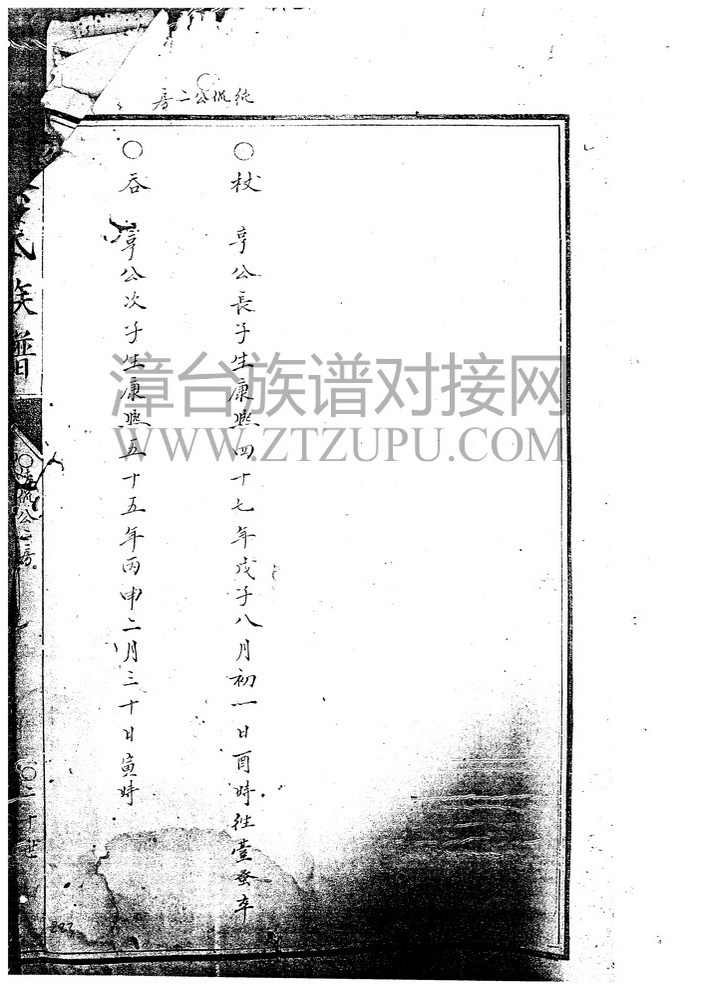 純侃公二房
○杖 亨公長子生康熙四十七年戊子八月初一日酉時往臺蚤卒
○吞 亨公次子生康熙五十五年丙申二月三十日寅時
氏族譜
侃公二房
○二十世
漳台族谱对接网
WWW.ZTZUPU.COM